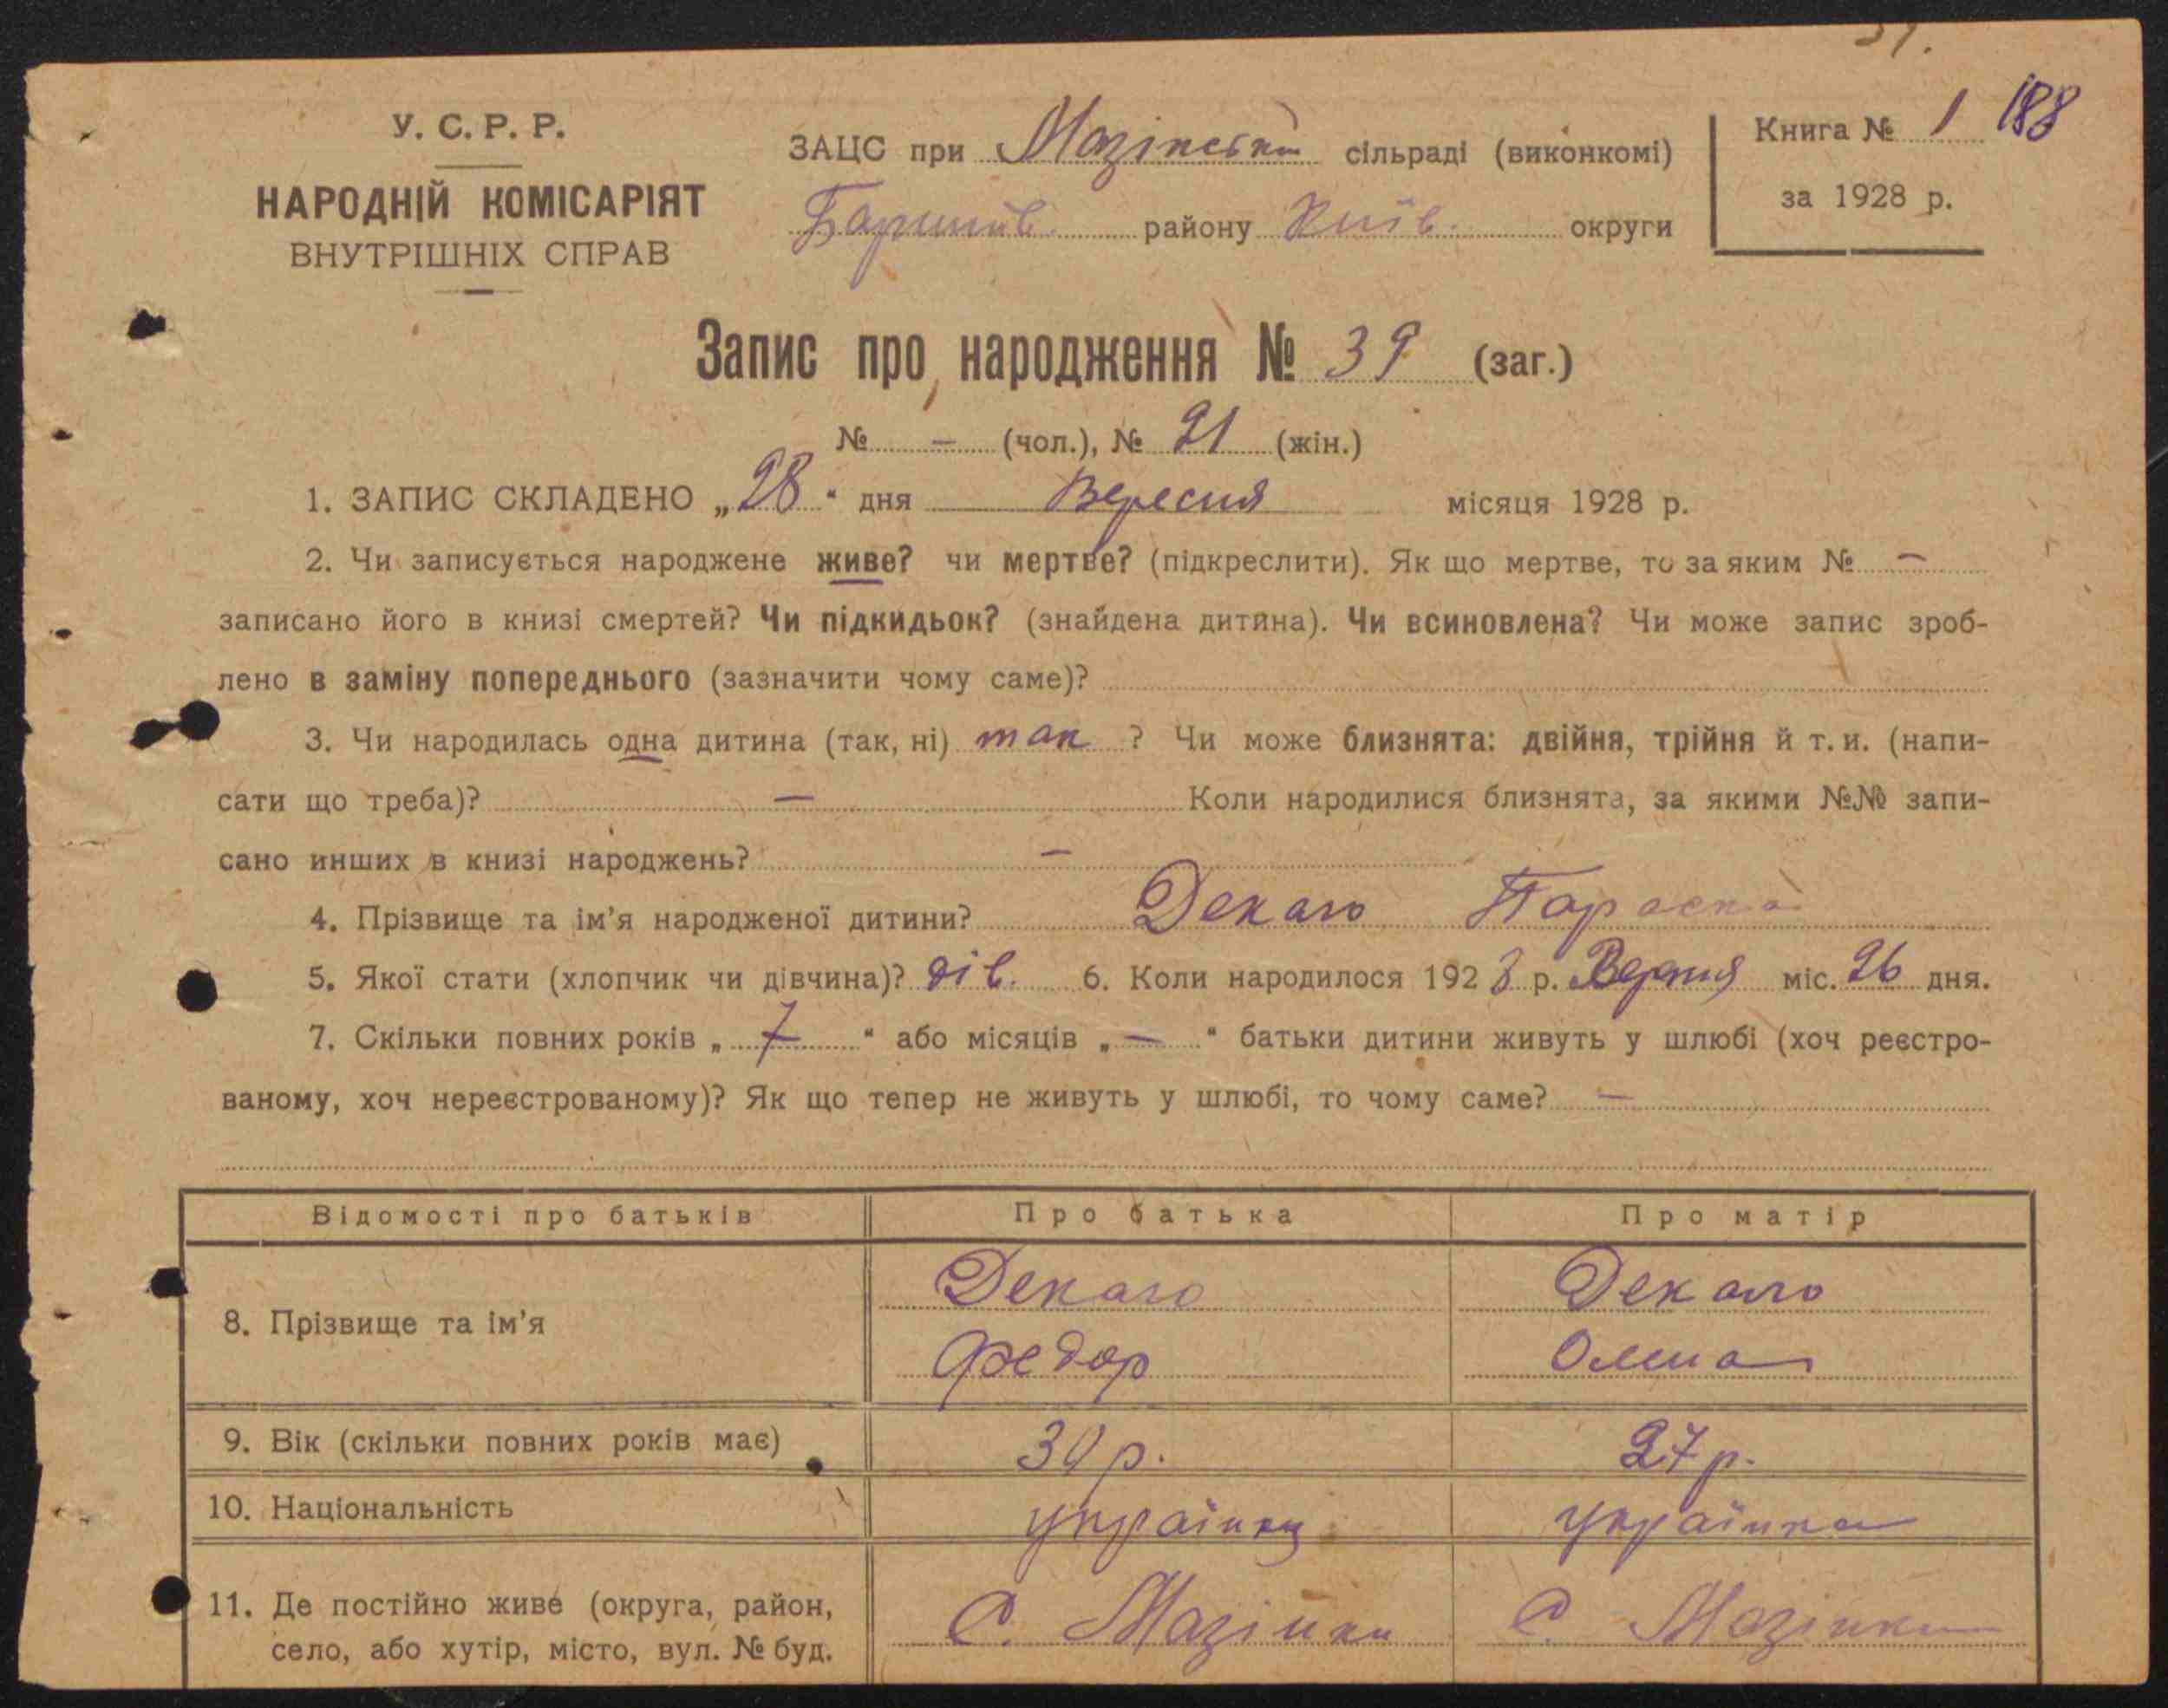 31.
У. С. Р. Р.
НАРОДНІЙ КОМІСАРІЯТ
ВНУТРІШНІХ СПРАВ
ЗАЦС при Мазінській сільраді (виконкомі)
Баришів. району Київ. округи
Книга № 1 188
за 1928 р.
Запис про народження № 39 (заг.)
№ — (чол.), № 21 (жін.)
1. ЗАПИС СКЛАДЕНО „28“ дня Вересня місяця 1928 р.
2. Чи записується народжене живе? чи мертве? (підкреслити). Як що мертве, то за яким № —
записано його в книзі смертей? Чи підкидьок? (знайдена дитина). Чи всиновлена? Чи може запис зроб-
лено в заміну попереднього (зазначити чому саме)?
3. Чи народилась одна дитина (так, ні) так ? Чи може близнята: двійня, трійня й т. и. (напи-
сати що треба)? — Коли народилися близнята, за якими №№ запи-
сано инших в книзі народжень? —
4. Прізвище та ім'я народженої дитини? Декало Параска
5. Якої стати (хлопчик чи дівчина)? дів. 6. Коли народилося 1928 р. Верня міс. 26 дня.
7. Скільки повних років „ 7 “ або місяців „ — “ батьки дитини живуть у шлюбі (хоч реєстро-
ваному, хоч нереєстрованому)? Як що тепер не живуть у шлюбі, то чому саме? —
Відомості про батьків Про батька Про матір
8. Прізвище та ім'я
Декало Декало
Федор Олена
9. Вік (скільки повних років має) 30 р. 27 р.
10. Національність українц українка
11. Де постійно живе (округа, район,
село, або хутір, місто, вул. № буд.
С. Мазінки С. Мазінки